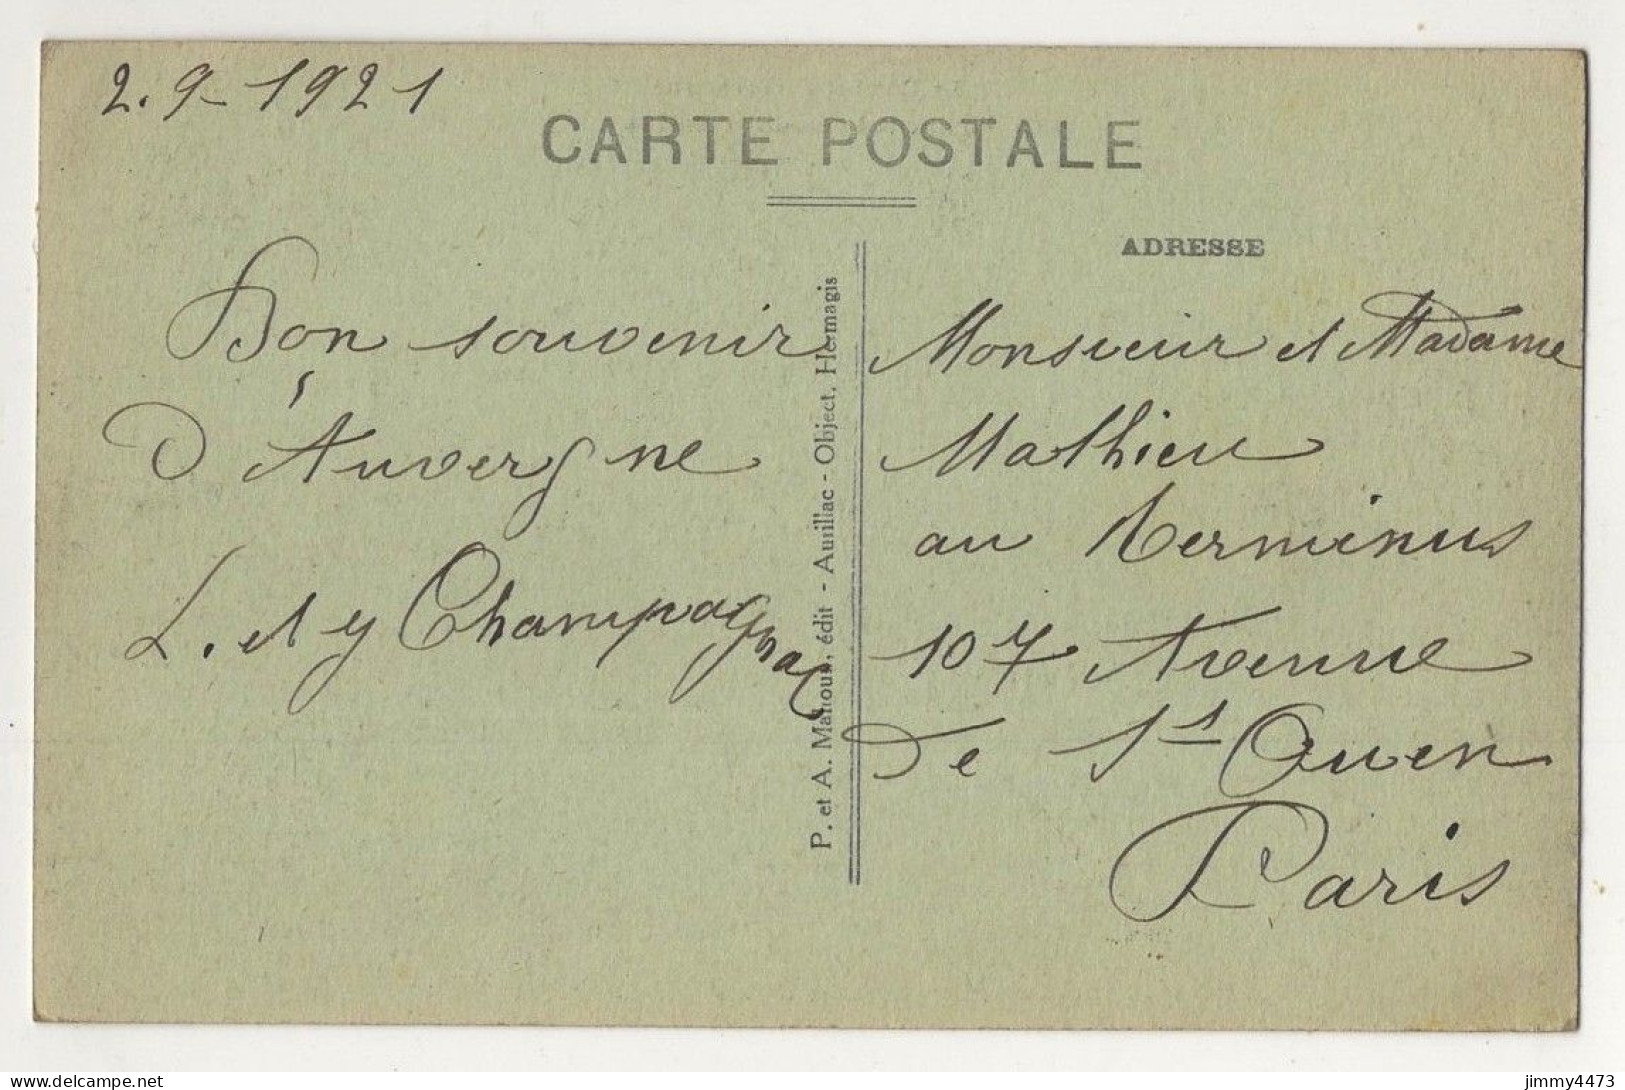 2.9-1921
CARTE POSTALE
Bon souvenir
D'Auvergne
L. et y Champagnac
P. et A. Malroux, édit - Aurillac - Object. Hermagis
ADRESSE
Monsieur et Madame
Mathieu
au terminus
107 Avenue
De St Ouen
Paris
delcampe.net
jimmy4473